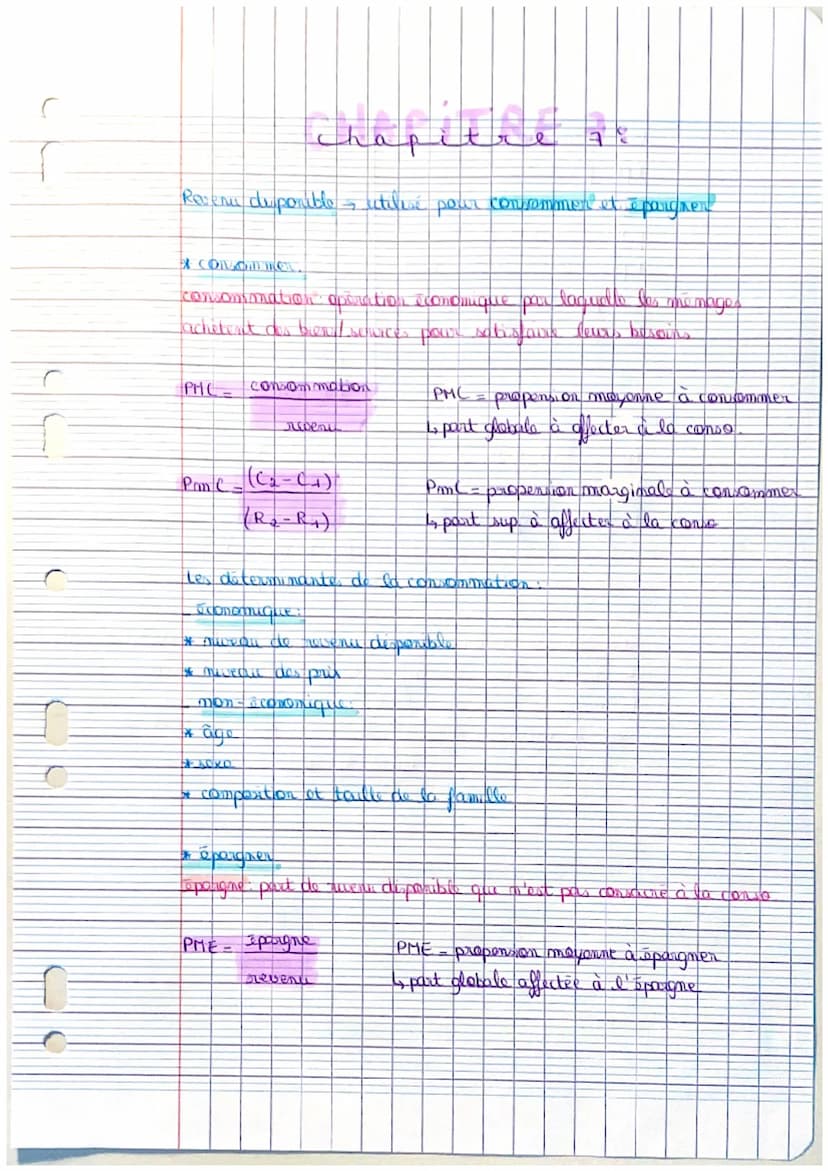 CHAPITRE 7
Chapitre 7 :
Revenu disponible → utilisé pour consommer et épargner
* consommer.
consommation : opération économique par laquelle les ménages
achètent des biens/services pour satisfaire leurs besoins
PMC = consommation / revenu
PMC = propension moyenne à consommer
↳ part globale à affecter à la conso.
PmC = (C2 - C1) / (R2 - R1)
PmC = propension marginale à consommer
↳ part sup. à affecter à la conso
Les déterminants de la consommation :
- économique :
* niveau de revenu disponible
* niveau des prix
- non-économique :
* âge
* sexe
* composition et taille de la famille
* épargner.
épargne : part de revenu disponible qui n'est pas consacré à la conso
PME = épargne / revenu
PME = propension moyenne à épargner
↳ part globale affectée à l'épargne